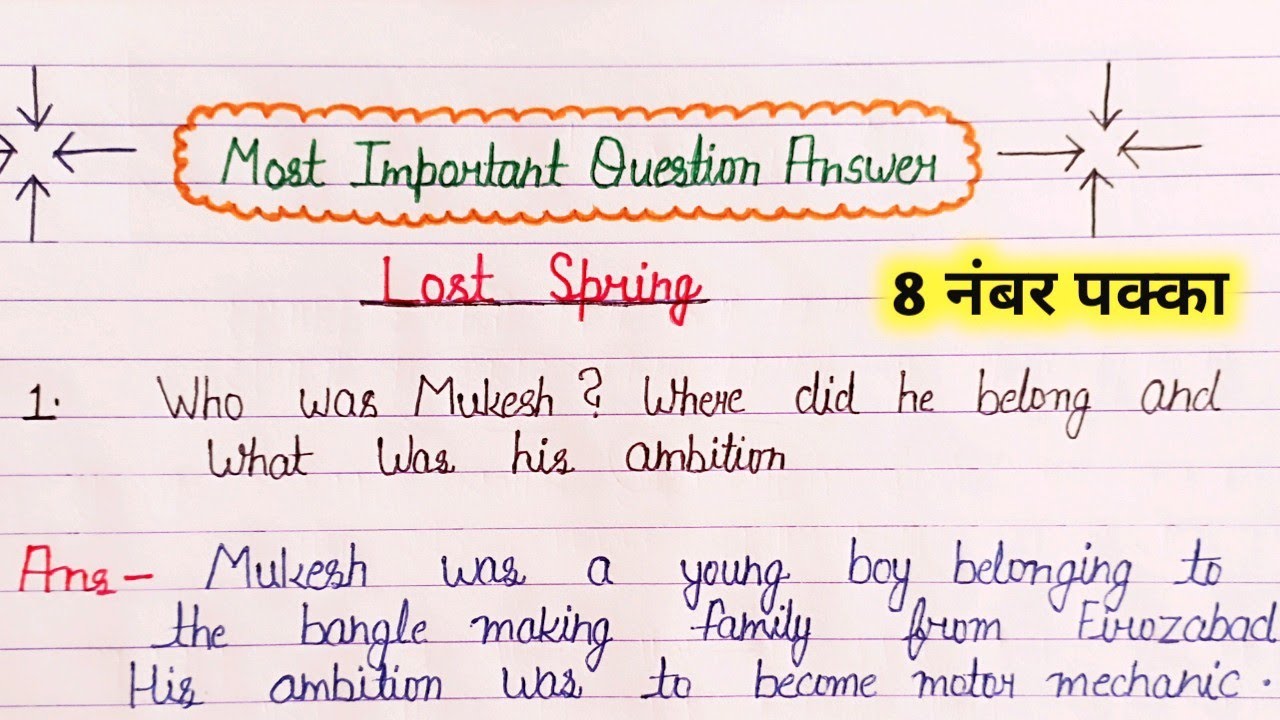 Most Important Question Answer
Lost Spring
8 नंबर पक्का
1. Who was Mukesh? Where did he belong and
What Was his ambition
Ans- Mukesh was a young boy belonging to
the bangle making family from Firozabad
His ambition was to become motor mechanic.